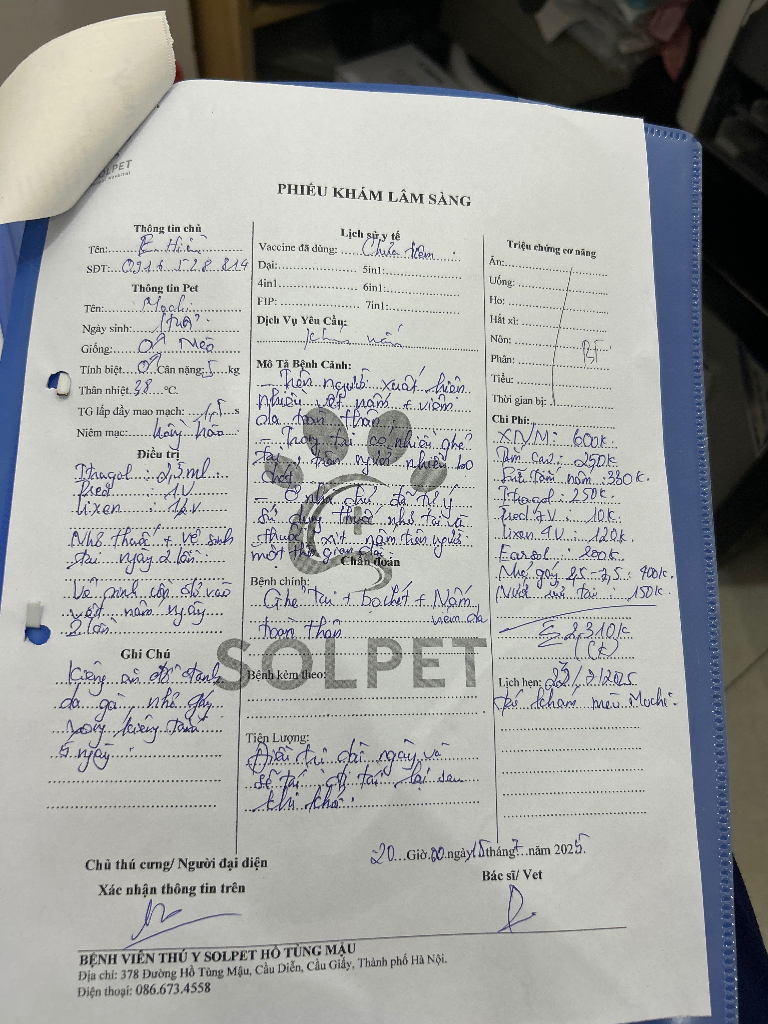 SOLPET
PHIẾU KHÁM LÂM SÀNG
Thông tin chủ
Tên: E. Hiền
SĐT: 0916 528 814
Thông tin Pet
Tên: Mochi
Ngày sinh: 1 tuổi
Giống: ♂ Mèo
Tính biệt: ♂ Cân nặng: 5 kg
Thân nhiệt 38 °C.
TG lấp đầy mao mạch: 1,5 s
Niêm mạc: hồng hào
Điều trị
Ithagol: 2,5 ml
Pred: 1V
Lixen: 1/2V
Nhỏ thuốc + vệ sinh
tai ngày 2 lần
Vệ sinh cồn đỏ vào
vết nấm ngày
2 lần
Ghi Chú
Kiêng ăn đồ tanh,
da gà, nhỏ gáy
xong kiêng tắm
5 ngày
Lịch sử y tế
Vaccine đã dùng: Chưa tiêm
Dại: 5in1:
4in1 6in1:
FIP: 7in1:
Dịch Vụ Yêu Cầu:
khám nấm
Mô Tả Bệnh Cảnh:
- Trên người xuất hiện
nhiều vết nấm + viêm
da toàn thân
- Trong tai có nhiều ghẻ
tai, trên người nhiều bọ
chét
- Ở nhà chủ đã tự ý
sử dụng thuốc nhỏ tai và
thuốc xịt nấm trên người
một thời gian dài
Chẩn đoán
Bệnh chính:
Ghẻ tai + bọ chét + Nấm,
viêm da
toàn thân
SOLPET
Bệnh kèm theo:
Tiên Lượng:
Điều trị dài ngày và
sẽ tái đi tái lại sau
khi khỏi.
Triệu chứng cơ năng
Ăn:
Uống:
Ho:
Hắt xì:
Nôn: BT
Phân:
Tiểu:
Thời gian bị:
Chi Phí:
XN/M: 600k
250k
Sữa tắm nấm: 330k.
Ithagol: 250k.
Pred 7V: 10k.
Lixen 4V: 120k.
Earsol: 200k.
Nhỏ gáy 2,5-7,5: 400k.
Nước tai: 150k.
Σ 2.310k
(CK)
Lịch hẹn: 23/7/2025
tái khám mèo Mochi.
20 Giờ 00 ngày 15 tháng 7 năm 2025.
Chủ thú cưng/ Người đại diện
Xác nhận thông tin trên
Bác sĩ/ Vet
BỆNH VIỆN THÚ Y SOLPET HỒ TÙNG MẬU
Địa chỉ: 378 Đường Hồ Tùng Mậu, Cầu Diễn, Cầu Giấy, Thành phố Hà Nội.
Điện thoại: 086.673.4558